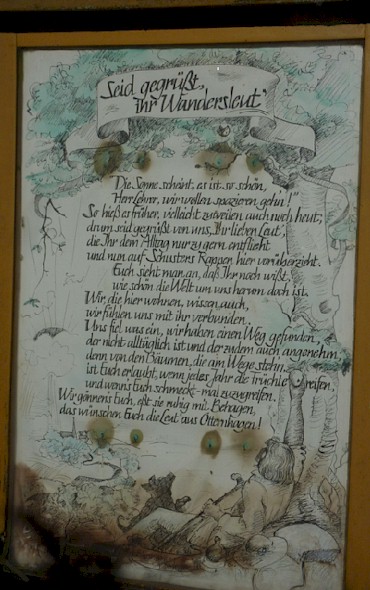 Seid gegrüßt,
ihr Wandersleut'
"Die Sonne scheint, es ist so schön,
Herr Lehrer, wir wollen spazieren gehn!"
So hieß es früher, vielleicht zuweilen auch noch heut;
drum seid gegrüßt von uns, "Ihr lieben Leut",
die Ihr dem Alltag nur zu gern entflieht
und nun auf Schusters Rappen hier vorüberzieht.
Euch sieht man an, daß Ihr noch wißt,
wie schön die Welt um uns herum doch ist.
Wir, die hier wohnen, wissen auch,
wir fühlen uns mit ihr verbunden.
Uns fiel was ein, wir haben einen Weg gefunden,
der nicht alltäglich ist und der zudem auch angenehm,
denn von den Bäumen, die am Wege stehn,
ist Euch erlaubt, wenn jedes Jahr die Früchte reifen,
und wenns Euch schmeckt - mal zuzugreifen.
Wir gönnens Euch, eßt sie ruhig mit Behagen,
das wünschen Euch die Leut aus Ottenhausen!